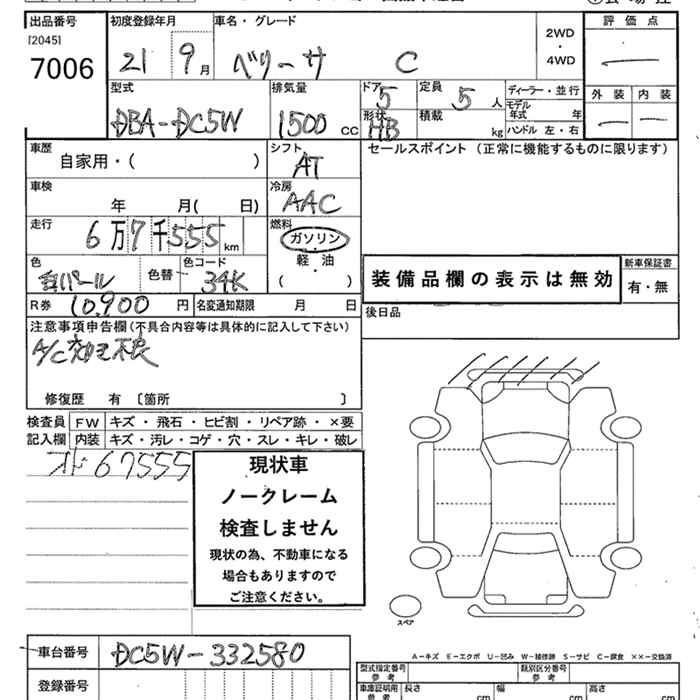 出品番号 初度登録年月 車名・グレード 評価点
[2045]
7006 21 9月 ベリーサ C 2WD・4WD
外装 内装
型式 排気量 ドア 定員 ディーラー・並行
DBA-DC5W 1500 CC 5 5 人 モデル年式 年
形状 HB 積載 kg ハンドル 左・右
車歴 シフト セールスポイント (正常に機能するものに限ります)
自家用・( ) AT
車検 冷房
年 月( 日) AAC
走行 燃料
6万7千555km ガソリン
軽・油
( )
色 色替 色コード
白パール 34K
装備品欄の表示は無効
新車保証書
有・無
R券 10,900 円 名変通知期限 月 日
後日品
注意事項申告欄(不具合内容等は具体的に記入して下さい)
A/C 効き不良
修復歴 有 〔箇所 〕
検査員 FW キズ・飛石・ヒビ割・リペア跡・×要
記入欄 内装 キズ・汚レ・コゲ・穴・スレ・キレ・破レ
67555
現状車
ノークレーム
検査しません
現状の為、不動車になる
場合もありますので
ご注意ください。
スペア
A-キズ E-エクボ U-凹み W-補修跡 S-サビ C-腐食 ××-交換済
車台番号 DC5W-332580
登録番号
型式指定番号 参考 類別区分番号 参考
車庫証明用 参考 長さ cm 幅 cm 高さ cm